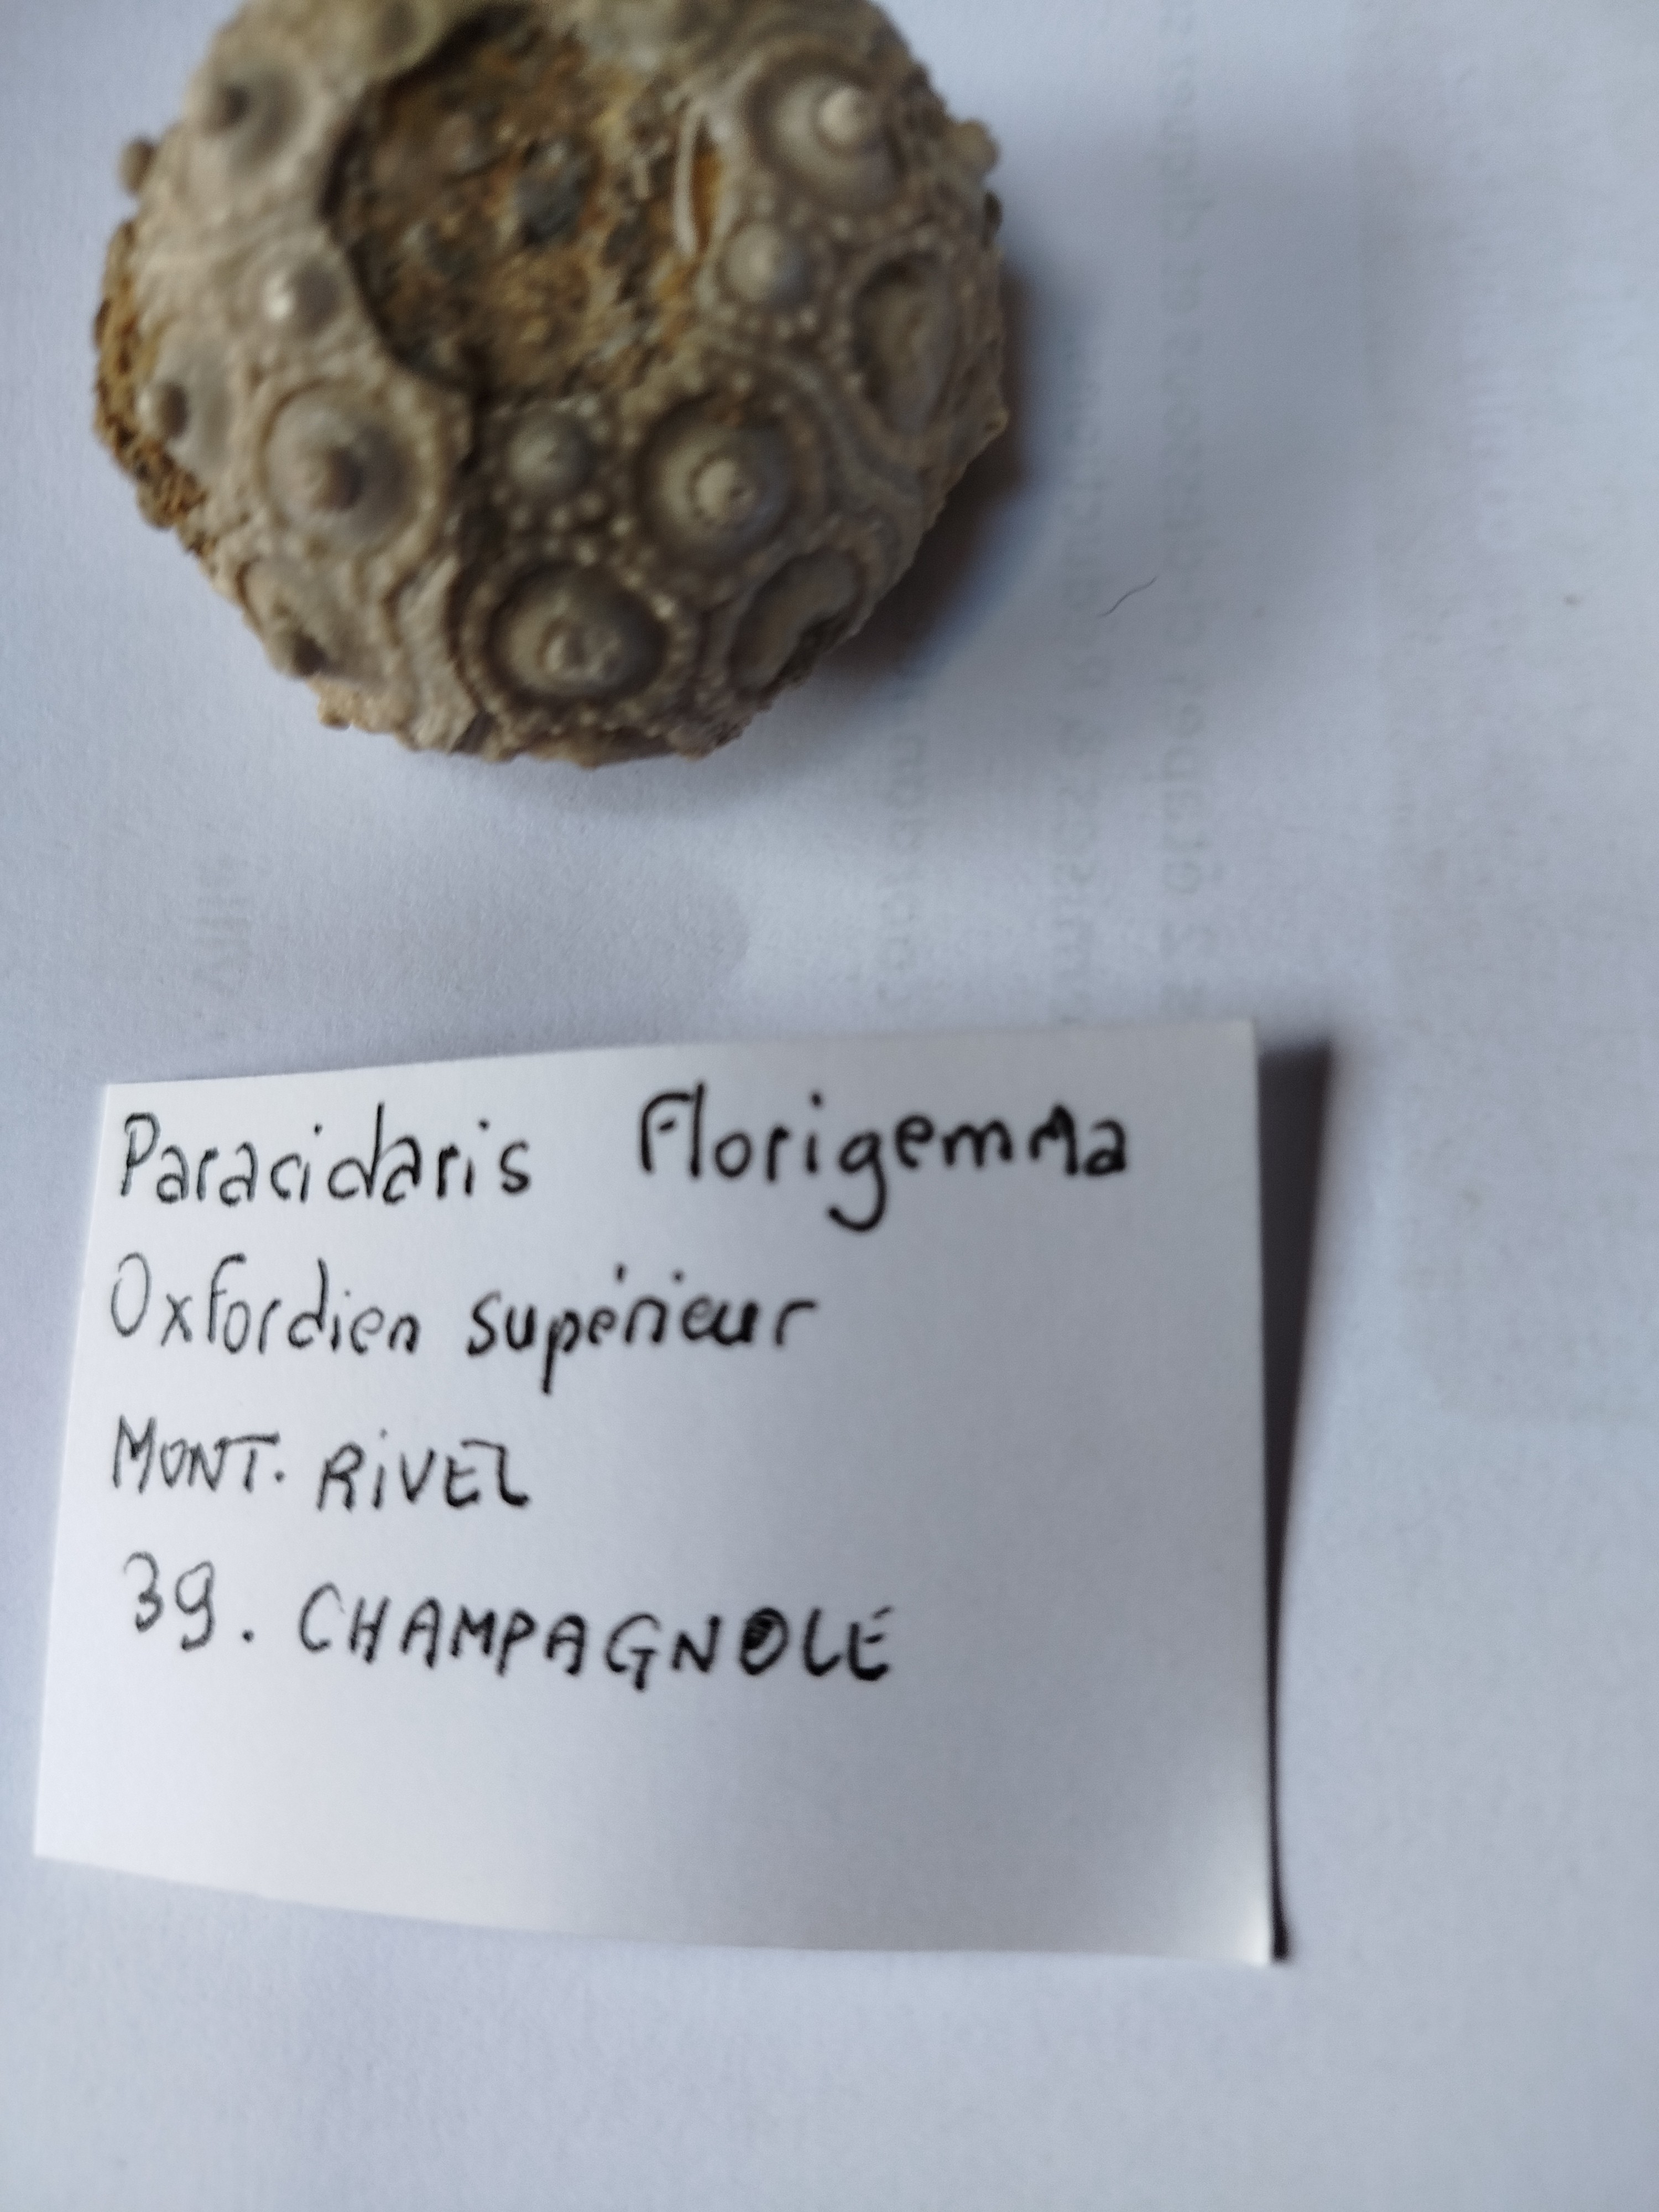 Paracidaris Florigemma
Oxfordien supérieur
MONT. RIVEL
39. CHAMPAGNOLE